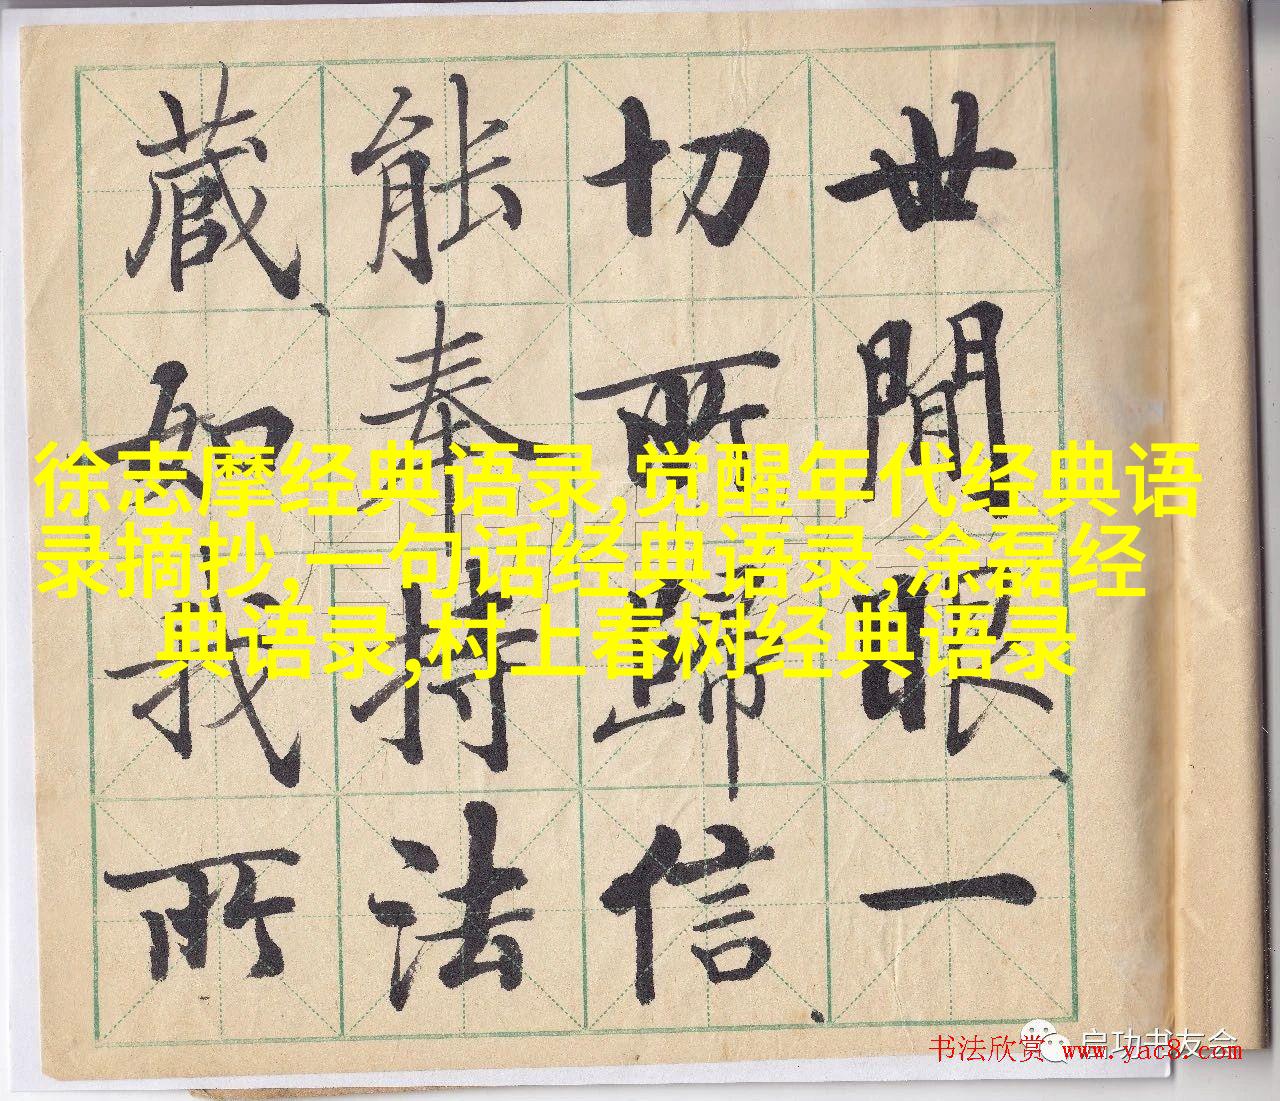 世間眼一
切所歸信
能奉持法
藏如我所
徐志摩经典语录,觉醒年代经典语
录摘抄,一句话经典语录,涂磊经
典语录,村上春树经典语录
启功书友会
书法欣赏 www.yac8.com